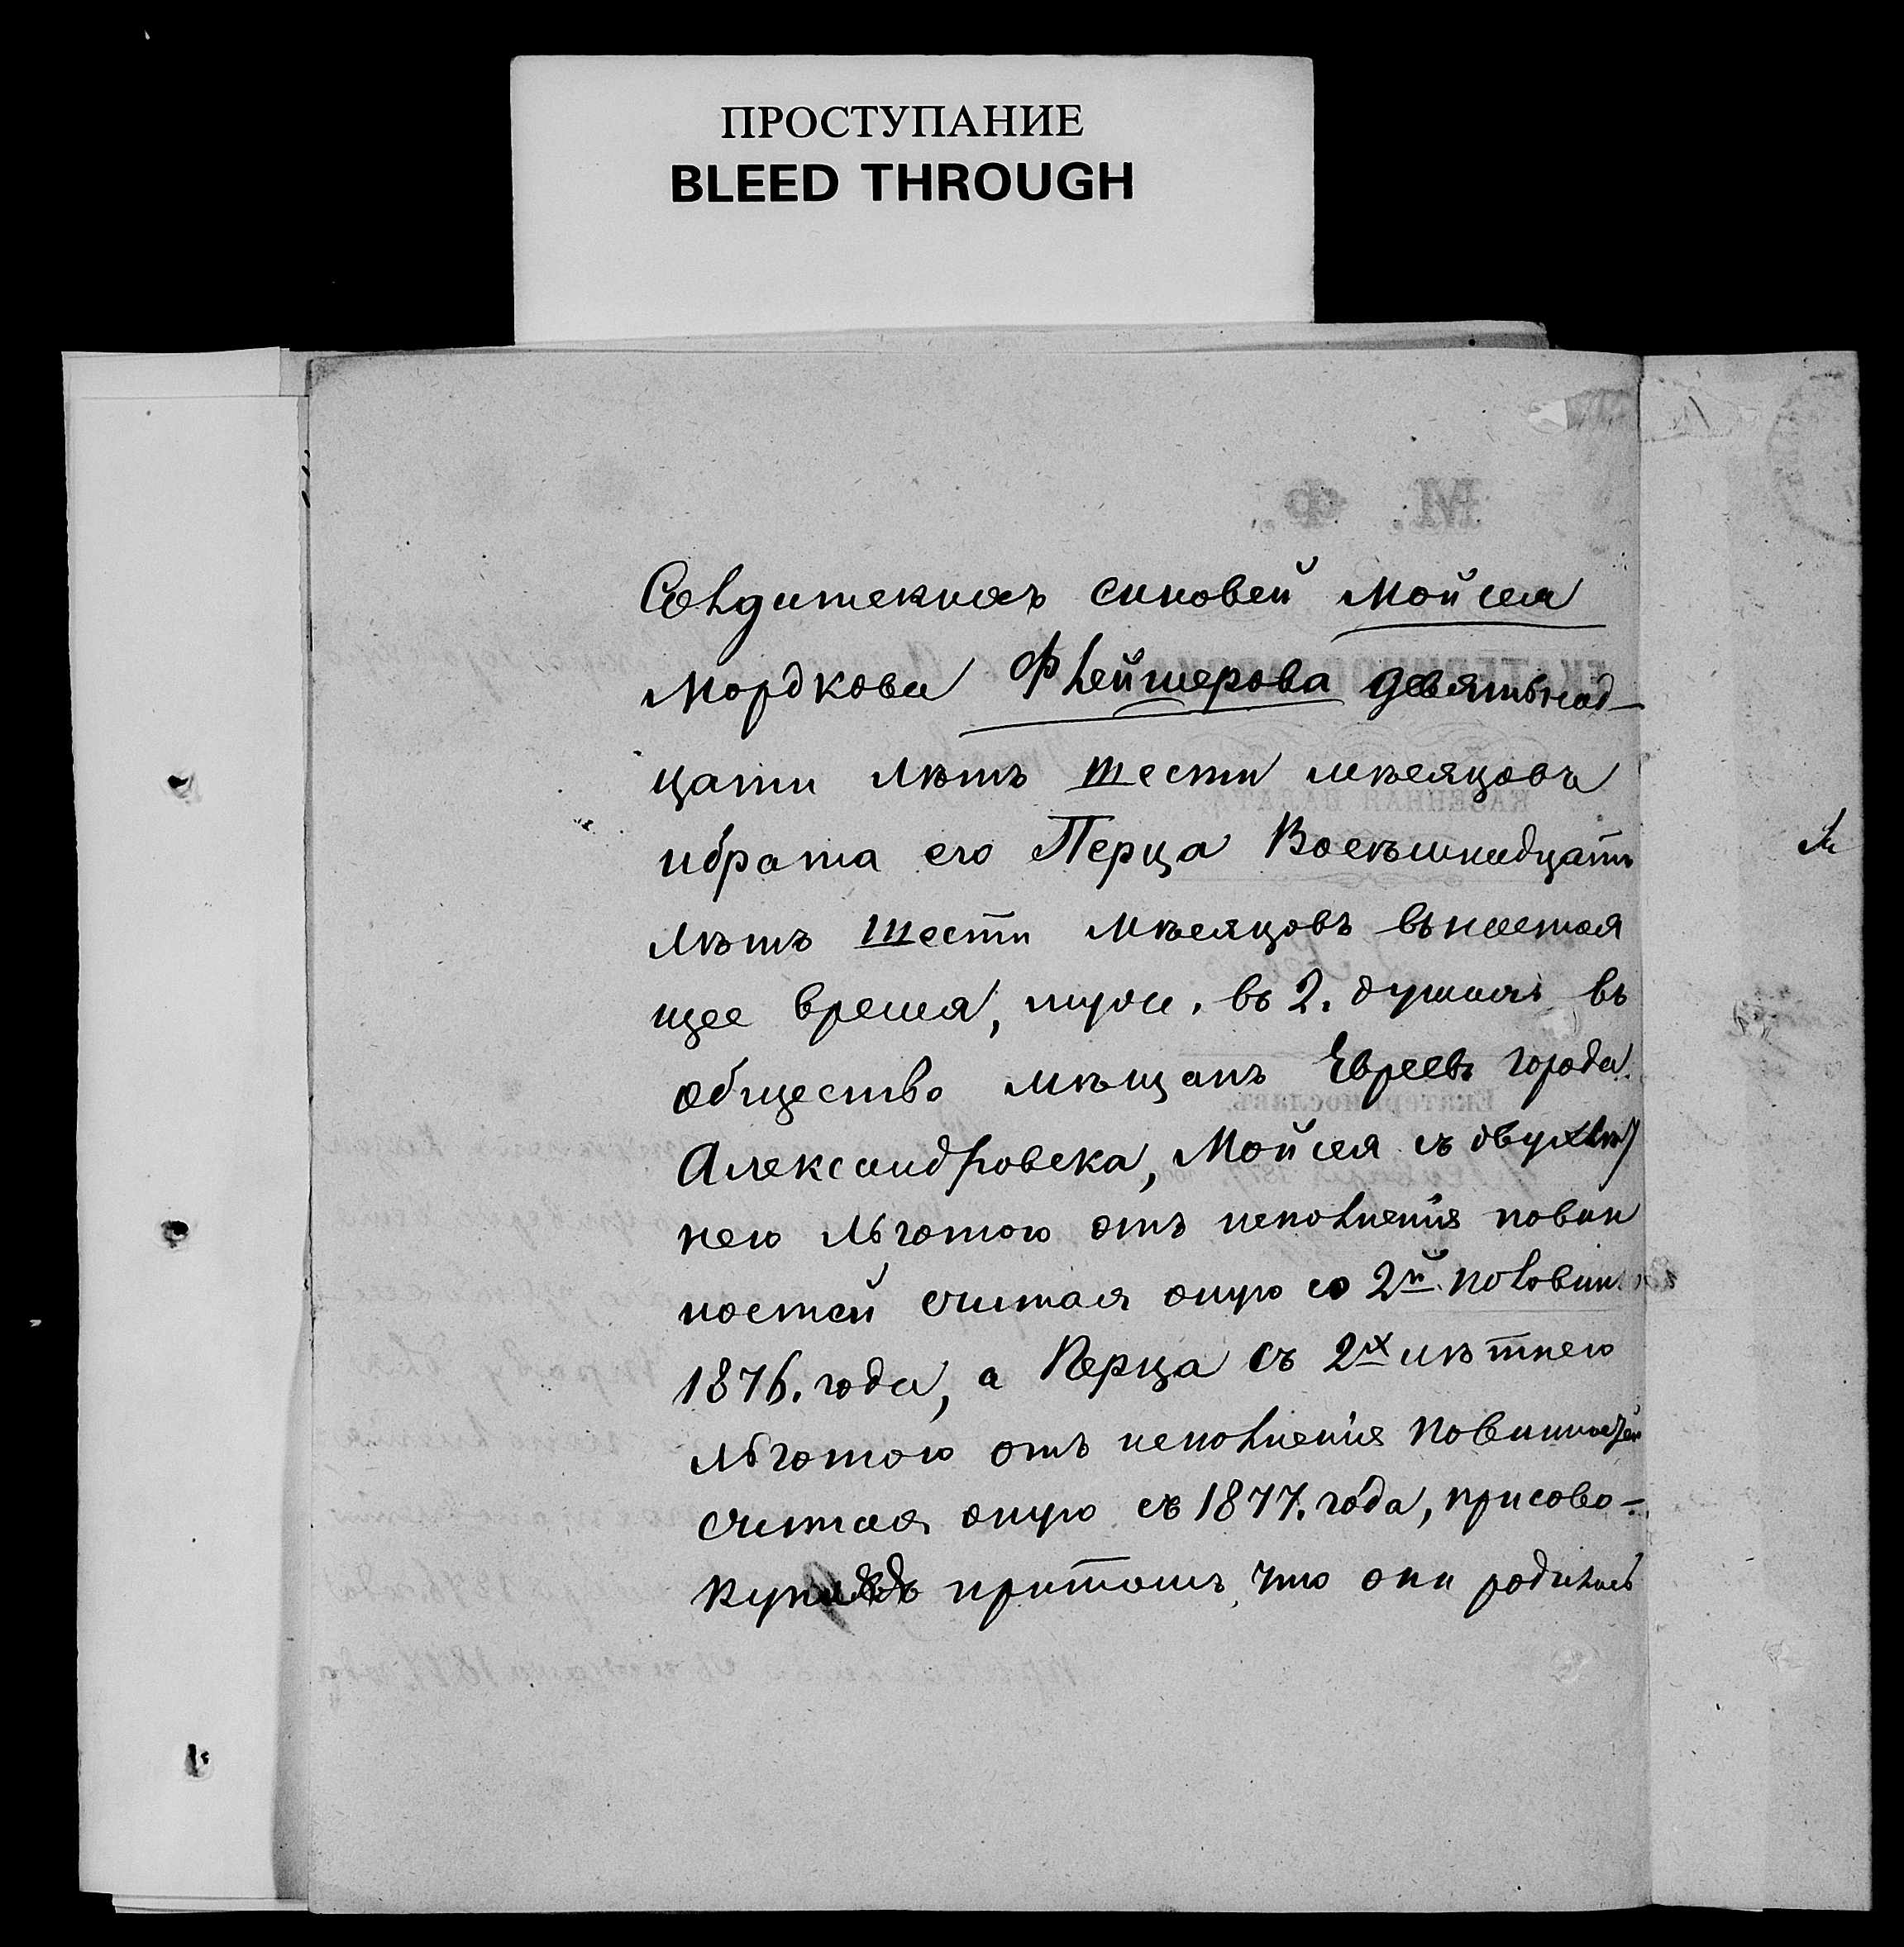 ПРОСТУПАНИЕ
BLEED THROUGH
М. Ф.
ЕКАТЕРИНОСЛАВСКАЯ
КАЗЕННАЯ ПАЛАТА
Екатеринославъ.
синовей Мойсея
Мордкова Флейшерова девятьнад-
цати лѣтъ шести мѣсяцовъ
ибрата его Перца Восьмнадцать
лѣтъ шести мѣсяцовъ внастоя
щее время, муж. въ 2. душахъ въ
общество мѣщанъ Евреевъ города
Александровска, Мойсея съ двухлѣт
нею льготою отъ исполненія повин
ностей считая оную со 2й половин
1876. года, а Перца съ 2х лѣтнею
льготою отъ исполненія повинностей
считая оную съ 1877. года, присово-
притомъ, что они родились